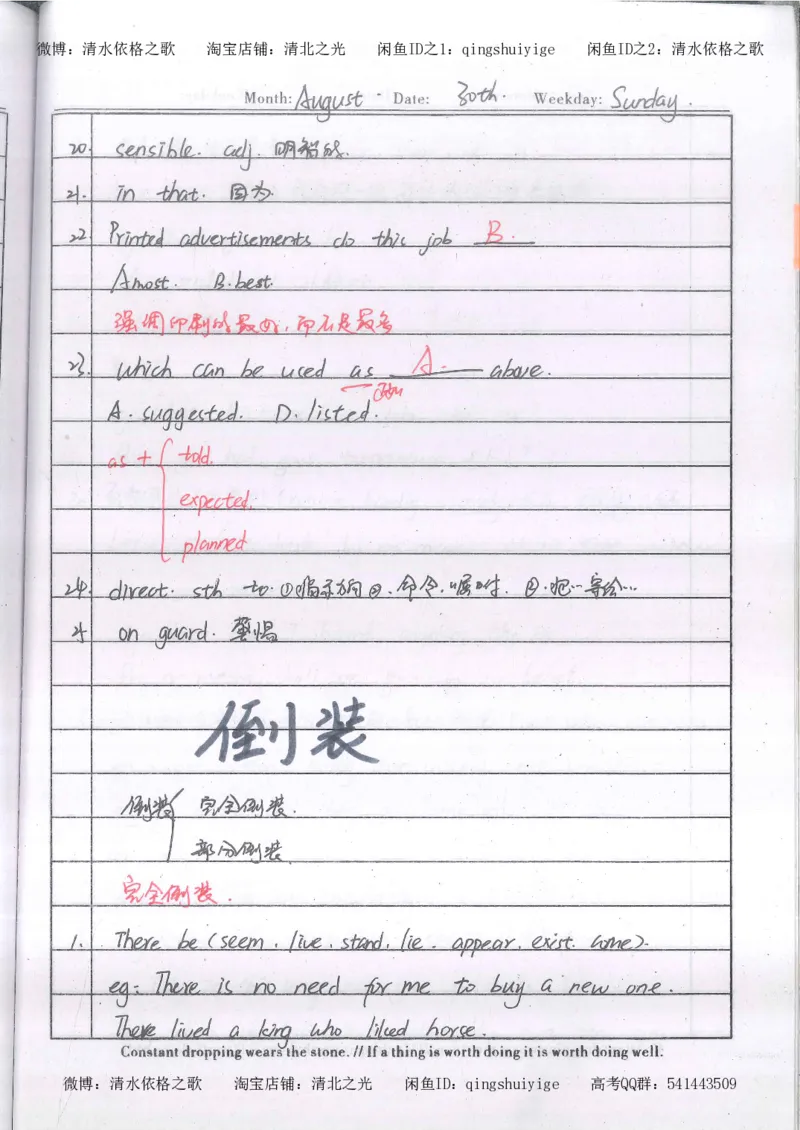 微博：清水依格之歌 淘宝店铺：清北之光 闲鱼ID之1：qingshuiyige 闲鱼ID之2：清水依格之歌
Month: August Date: 30th. Weekday: Sunday.
20. sensible. adj. 明智的.
21. in that. 因为.
22 Printed advertisements do this job B.
A most. B.best.
强调印刷的最好，而不是最多
23. which can be used as A. above.
A. suggested. D. listed.
as + told.
expected.
planned
24. direct. sth to. ①指示方向 ②. 命令，嘱咐. ③.把…寄给…
on guard. 警惕
倒装
倒装 完全倒装.
部分倒装
完全倒装.
1. There be (seem, live, stand, lie. appear. exist. come).
eg: There is no need for me to buy a new one.
There lived a king who liked horse.
Constant dropping wears the stone. // If a thing is worth doing it is worth doing well.
微博：清水依格之歌 淘宝店铺：清北之光 闲鱼ID：qingshuiyige 高考QQ群：541443509